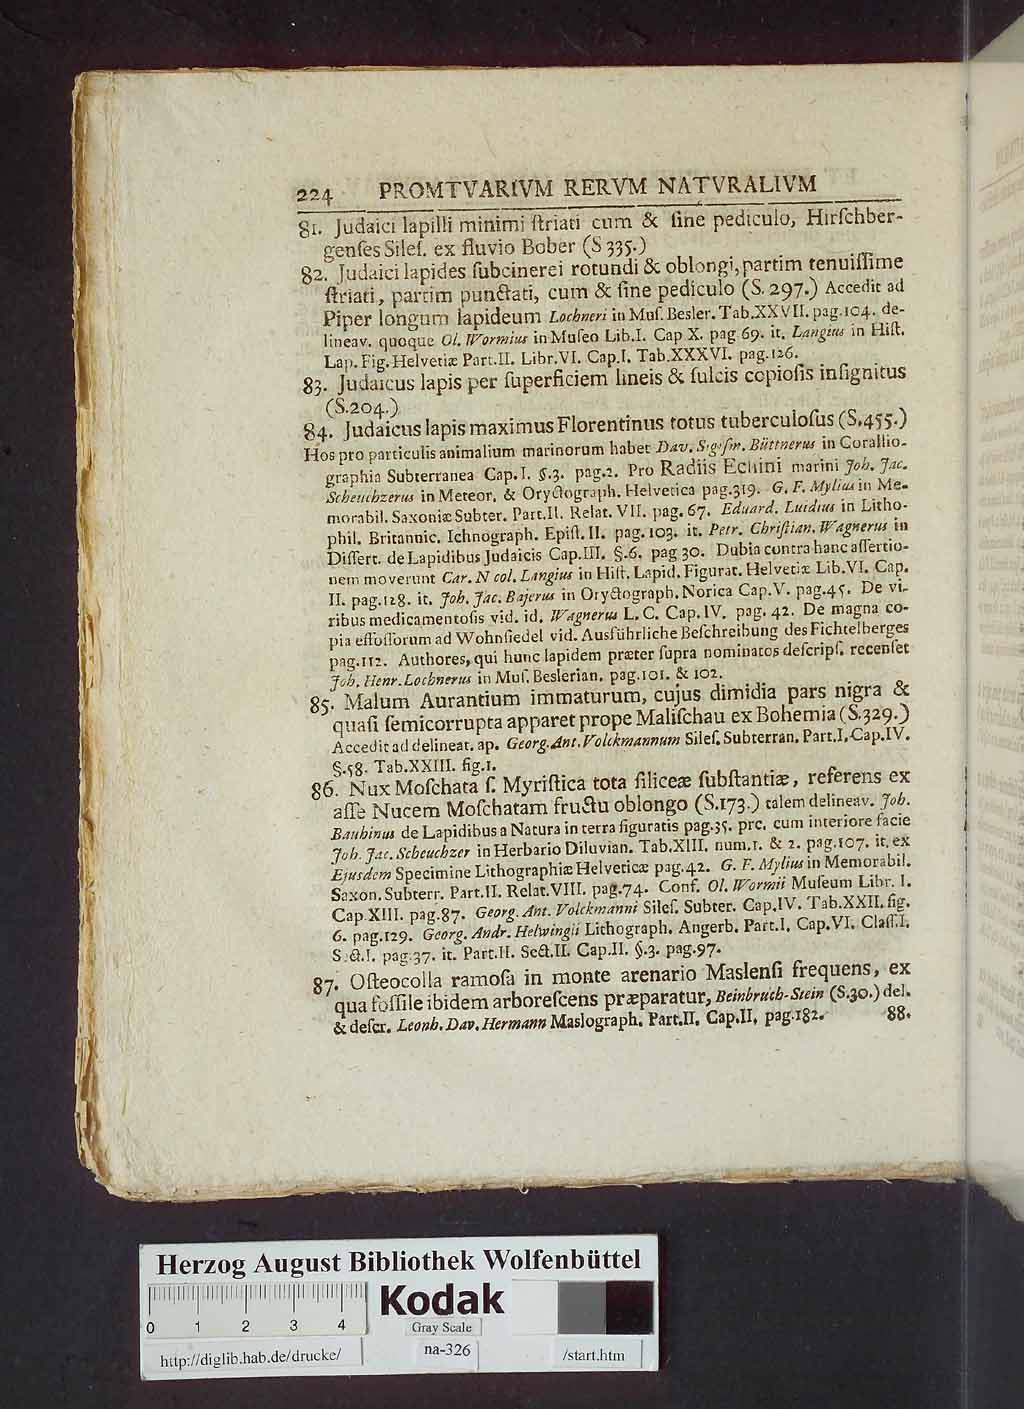 224 PROMTVARIVM RERVM NATVRALIVM
81. Judaici lapilli minimi ſtriati cum & ſine pediculo, Hirſchber-
genſes Sileſ. ex fluvio Bober (S 335.)
82. Judaici lapides ſubcinerei rotundi & oblongi, partim tenuiſſime
ſtriati, partim punctati, cum & ſine pediculo (S. 297.) Accedit ad
Piper longum lapideum Lochneri in Muſ. Besler. Tab.XXVII. pag.104. de-
lineav. quoque Ol. Wormius in Muſeo Lib.I. Cap X. pag.69. it. Langius in Hiſt.
Lap. Fig. Helvetiæ Part.II. Libr.VI. Cap.I. Tab.XXXVI. pag.126.
83. Judaicus lapis per ſuperficiem lineis & ſulcis copioſis inſignitus
(S.204.)
84. Judaicus lapis maximus Florentinus totus tuberculoſus (S.455.)
Hos pro particulis animalium marinorum habet Dav. Sigiſm. Büttnerus in Corallio-
graphia Subterranea Cap.I. §.3. pag.2. Pro Radiis Echini marini Joh. Jac.
Scheuchzerus in Meteor. & Oryctograph. Helvetica pag.319. G. F. Mylius in Me-
morabil. Saxoniæ Subter. Part.II. Relat. VII. pag. 67. Eduard. Luidius in Litho-
phil. Britannic. Ichnograph. Epiſt. II. pag. 103. it. Petr. Chriſtian. Wagnerus in
Diſſert. de Lapidibus Judaicis Cap.III. §.6. pag 30. Dubia contra hanc aſſertio-
nem moverunt Car. N col. Langius in Hiſt. Lapid. Figurat. Helvetiæ Lib.VI. Cap.
II. pag.128. it. Joh. Jac. Bajerus in Oryctograph. Norica Cap.V. pag.45. De vi-
ribus medicamentoſis vid. id. Wagnerus L. C. Cap. IV. pag. 42. De magna co-
pia effoſſorum ad Wohnſiedel vid. Ausführliche Beſchreibung des Fichtelberges
pag.112. Authores, qui hunc lapidem præter ſupra nominatos deſcripſ. recenſet
Joh. Henr. Lochnerus in Muſ. Beslerian. pag.101. & 102.
85. Malum Aurantium immaturum, cujus dimidia pars nigra &
quaſi ſemicorrupta apparet prope Maliſchau ex Bohemia (S.329.)
Accedit ad delineat. ap. Georg. Ant. Volckmannum Sileſ. Subterran. Part.I. Cap.IV.
§.58. Tab.XXIII. fig.1.
86. Nux Moſchata ſ. Myriſtica tota ſiliceæ ſubſtantiæ, referens ex
aſſe Nucem Moſchatam fructu oblongo (S.173.) talem delineav. Joh.
Bauhinus de Lapidibus a Natura in terra figuratis pag.35. prc. cum interiore facie
Joh. Jac. Scheuchzer in Herbario Diluvian. Tab.XIII. num.1. & 2. pag.107. it. ex
Ejusdem Specimine Lithographiæ Helveticæ pag.42. G. F. Mylius in Memorabil.
Saxon. Subterr. Part.II. Relat.VIII. pag.74. Conf. Ol. Wormii Muſeum Libr. I.
Cap.XIII. pag.87. Georg. Ant. Volckmanni Sileſ. Subter. Cap.IV. Tab.XXII. fig.
6. pag.129. Georg. Andr. Helwingii Lithograph. Angerb. Part.I. Cap.VI. Claſſ.I.
Sect.I. pag.37. it. Part.II. Sect.II. Cap.II. §.3. pag.97.
87. Oſteocolla ramoſa in monte arenario Maslenſi frequens, ex
qua foſſile ibidem arboreſcens præparatur, Beinbruch-Stein (S.30.) del.
& deſcr. Leonh. Dav. Hermann Maslograph. Part.II. Cap.II. pag.182. 88.
Herzog August Bibliothek Wolfenbüttel
0 1 2 3 4 Kodak
Gray Scale
http://diglib.hab.de/drucke/ na-326 /start.htm